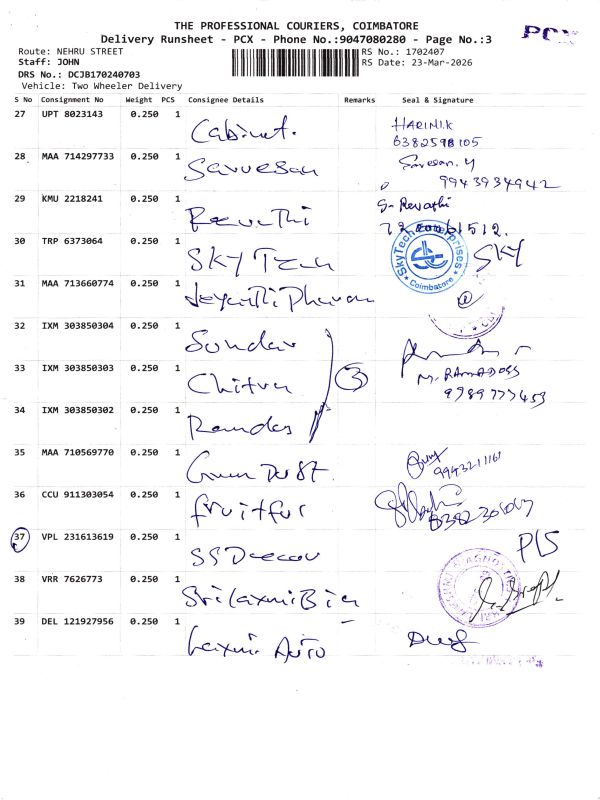 THE PROFESSIONAL COURIERS, COIMBATORE
PCX
Delivery Runsheet - PCX - Phone No.:9047080280 - Page No.:3
Route: NEHRU STREET RS No.: 1702407
Staff: JOHN RS Date: 23-Mar-2026
DRS No.: DCJB170240703
Vehicle: Two Wheeler Delivery
S No Consignment No Weight PCS Consignee Details Remarks Seal & Signature
27 UPT 8023143 0.250 1 Cabinet. HARINI.K
6382598105
28 MAA 714297733 0.250 1 Sarvesan
9943934942
29 KMU 2218241 0.250 1 Revathi S. Revathi
30 TRP 6373064 0.250 1 SKY Tech SkyTech Enterprises Coimbatore SKY
31 MAA 713660774 0.250 1
32 IXM 303850304 0.250 1 Sundar
33 IXM 303850303 0.250 1 Chitra 3 M. RAMADOSS
9789777453
34 IXM 303850302 0.250 1 Ramdas
35 MAA 710569770 0.250 1 9943211161
36 CCU 911303054 0.250 1 fruitfur
37 VPL 231613619 0.250 1 SS Deccan P/S
38 VRR 7626773 0.250 1 Sri Laxmi
39 DEL 121927956 0.250 1 Laxmi Auto